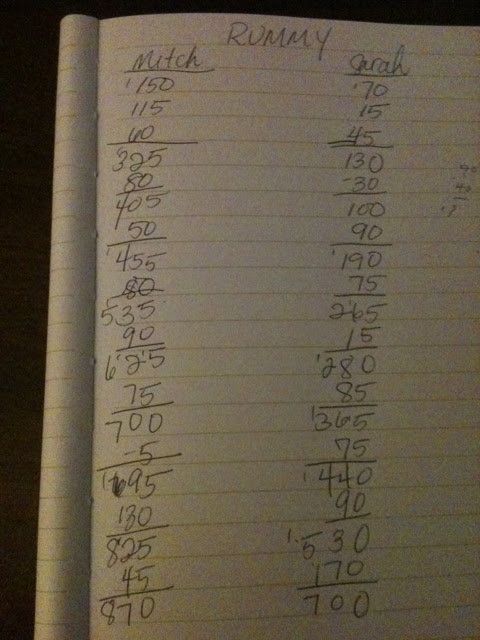 RUMMY
Mitch Sarah
150 70
115 15
60 45
325 130
80 -30
405 100
50 90
455 190
80 75
535 265
90 15
625 280
75 85
700 365
-5 75
695 440
130 90
825 530
45 170
870 700